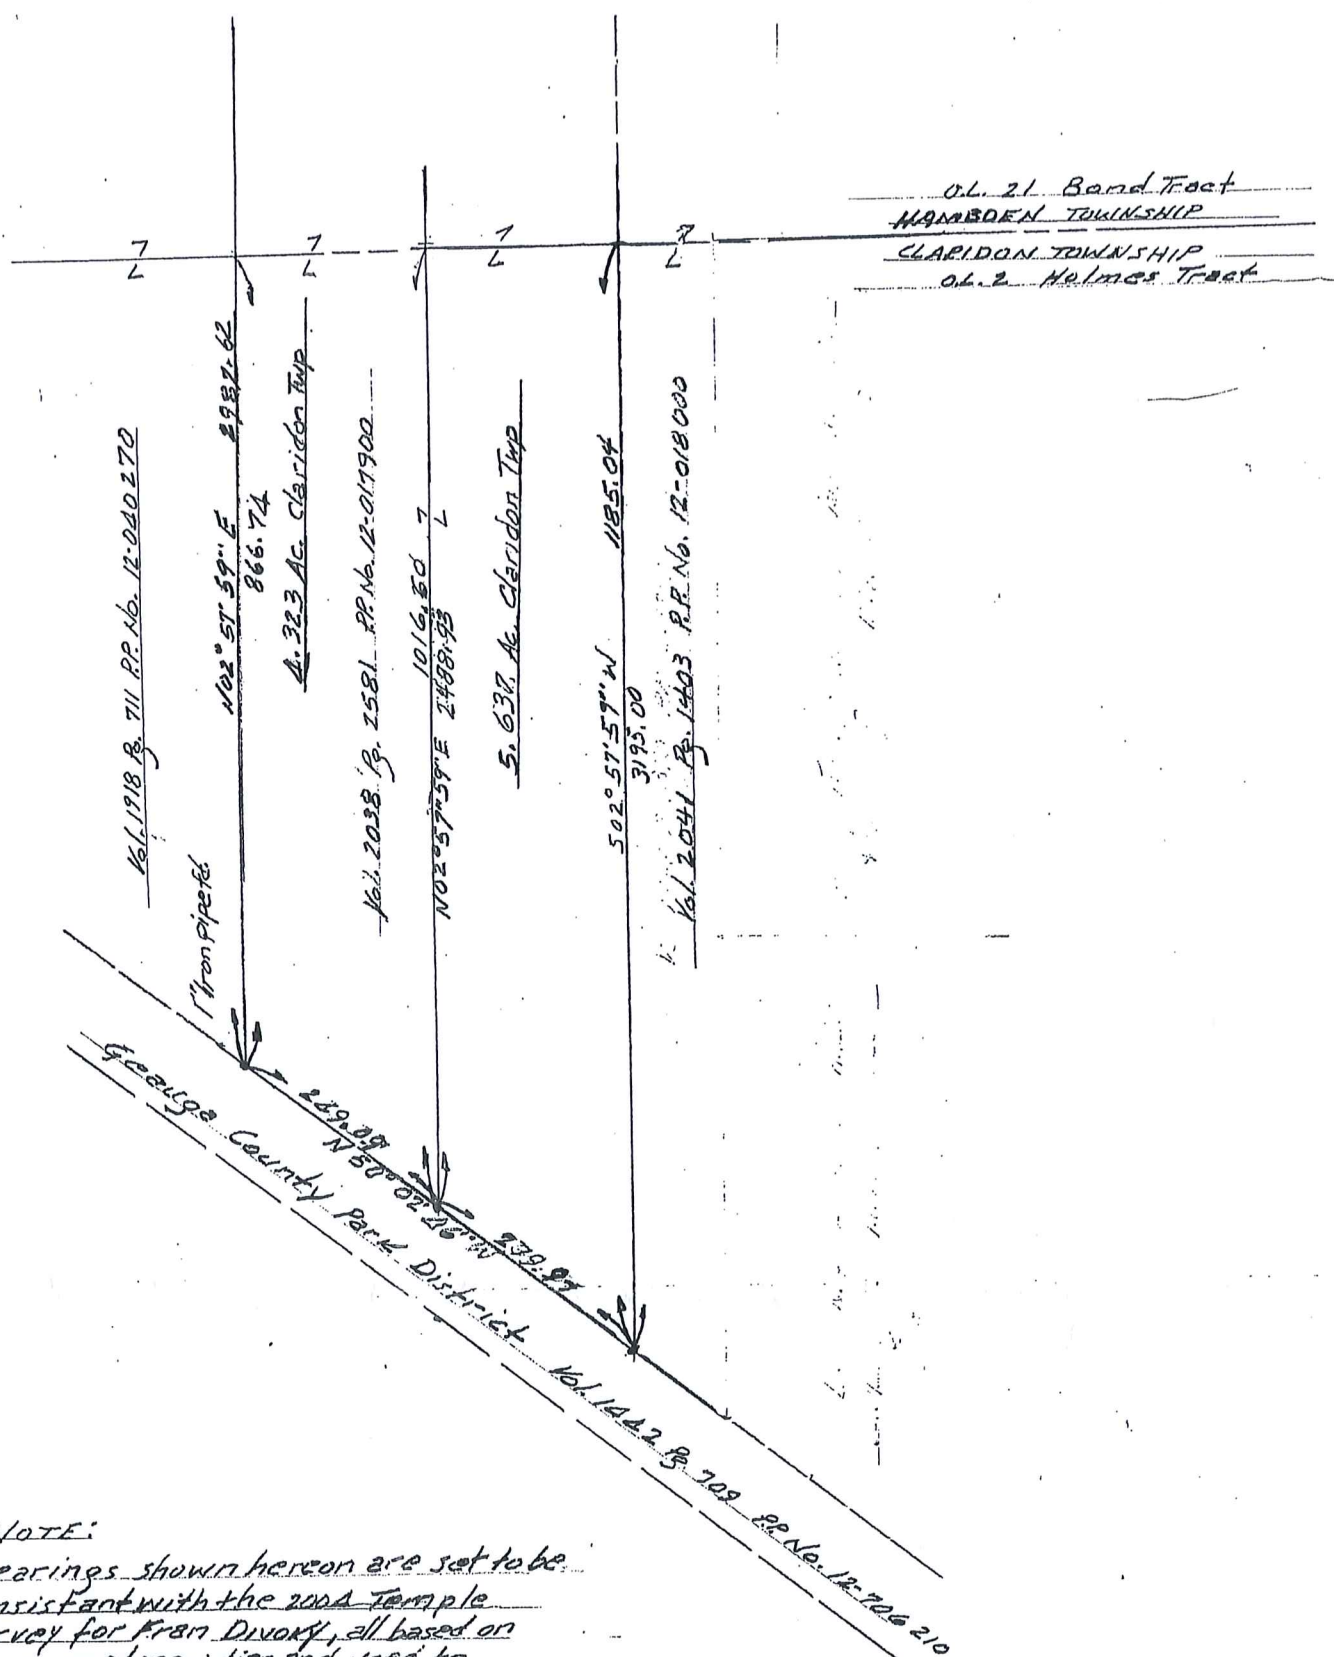 O.L. 21 Bond Tract
HAMBDEN TOWNSHIP
CLARIDON TOWNSHIP
O.L. 2 Holmes Tract
Vol. 1918 Pg. 711 P.P. No. 12-040270
N02° 57' 59" E 2987.62
866.74
4.323 Ac. Claridon Twp
Vol. 2038 Pg. 2581 P.P. No. 12-017900
1016.60
N02° 57' 59" E 2488.93
5.637 Ac. Claridon Twp
1185.04
S02° 57' 59" W
3195.00
Vol. 2041 Pg. 1403 P.P. No. 12-018000
1" Iron pipe fd.
N 50° 02' 46" W
Geauga County Park District Vol. 1442 Pg 709 P.P. No. 12-706 210
NOTE:
earings shown hereon are set to be
nsistant with the 2004 Temple
rvey for Fran Divoky, all based on